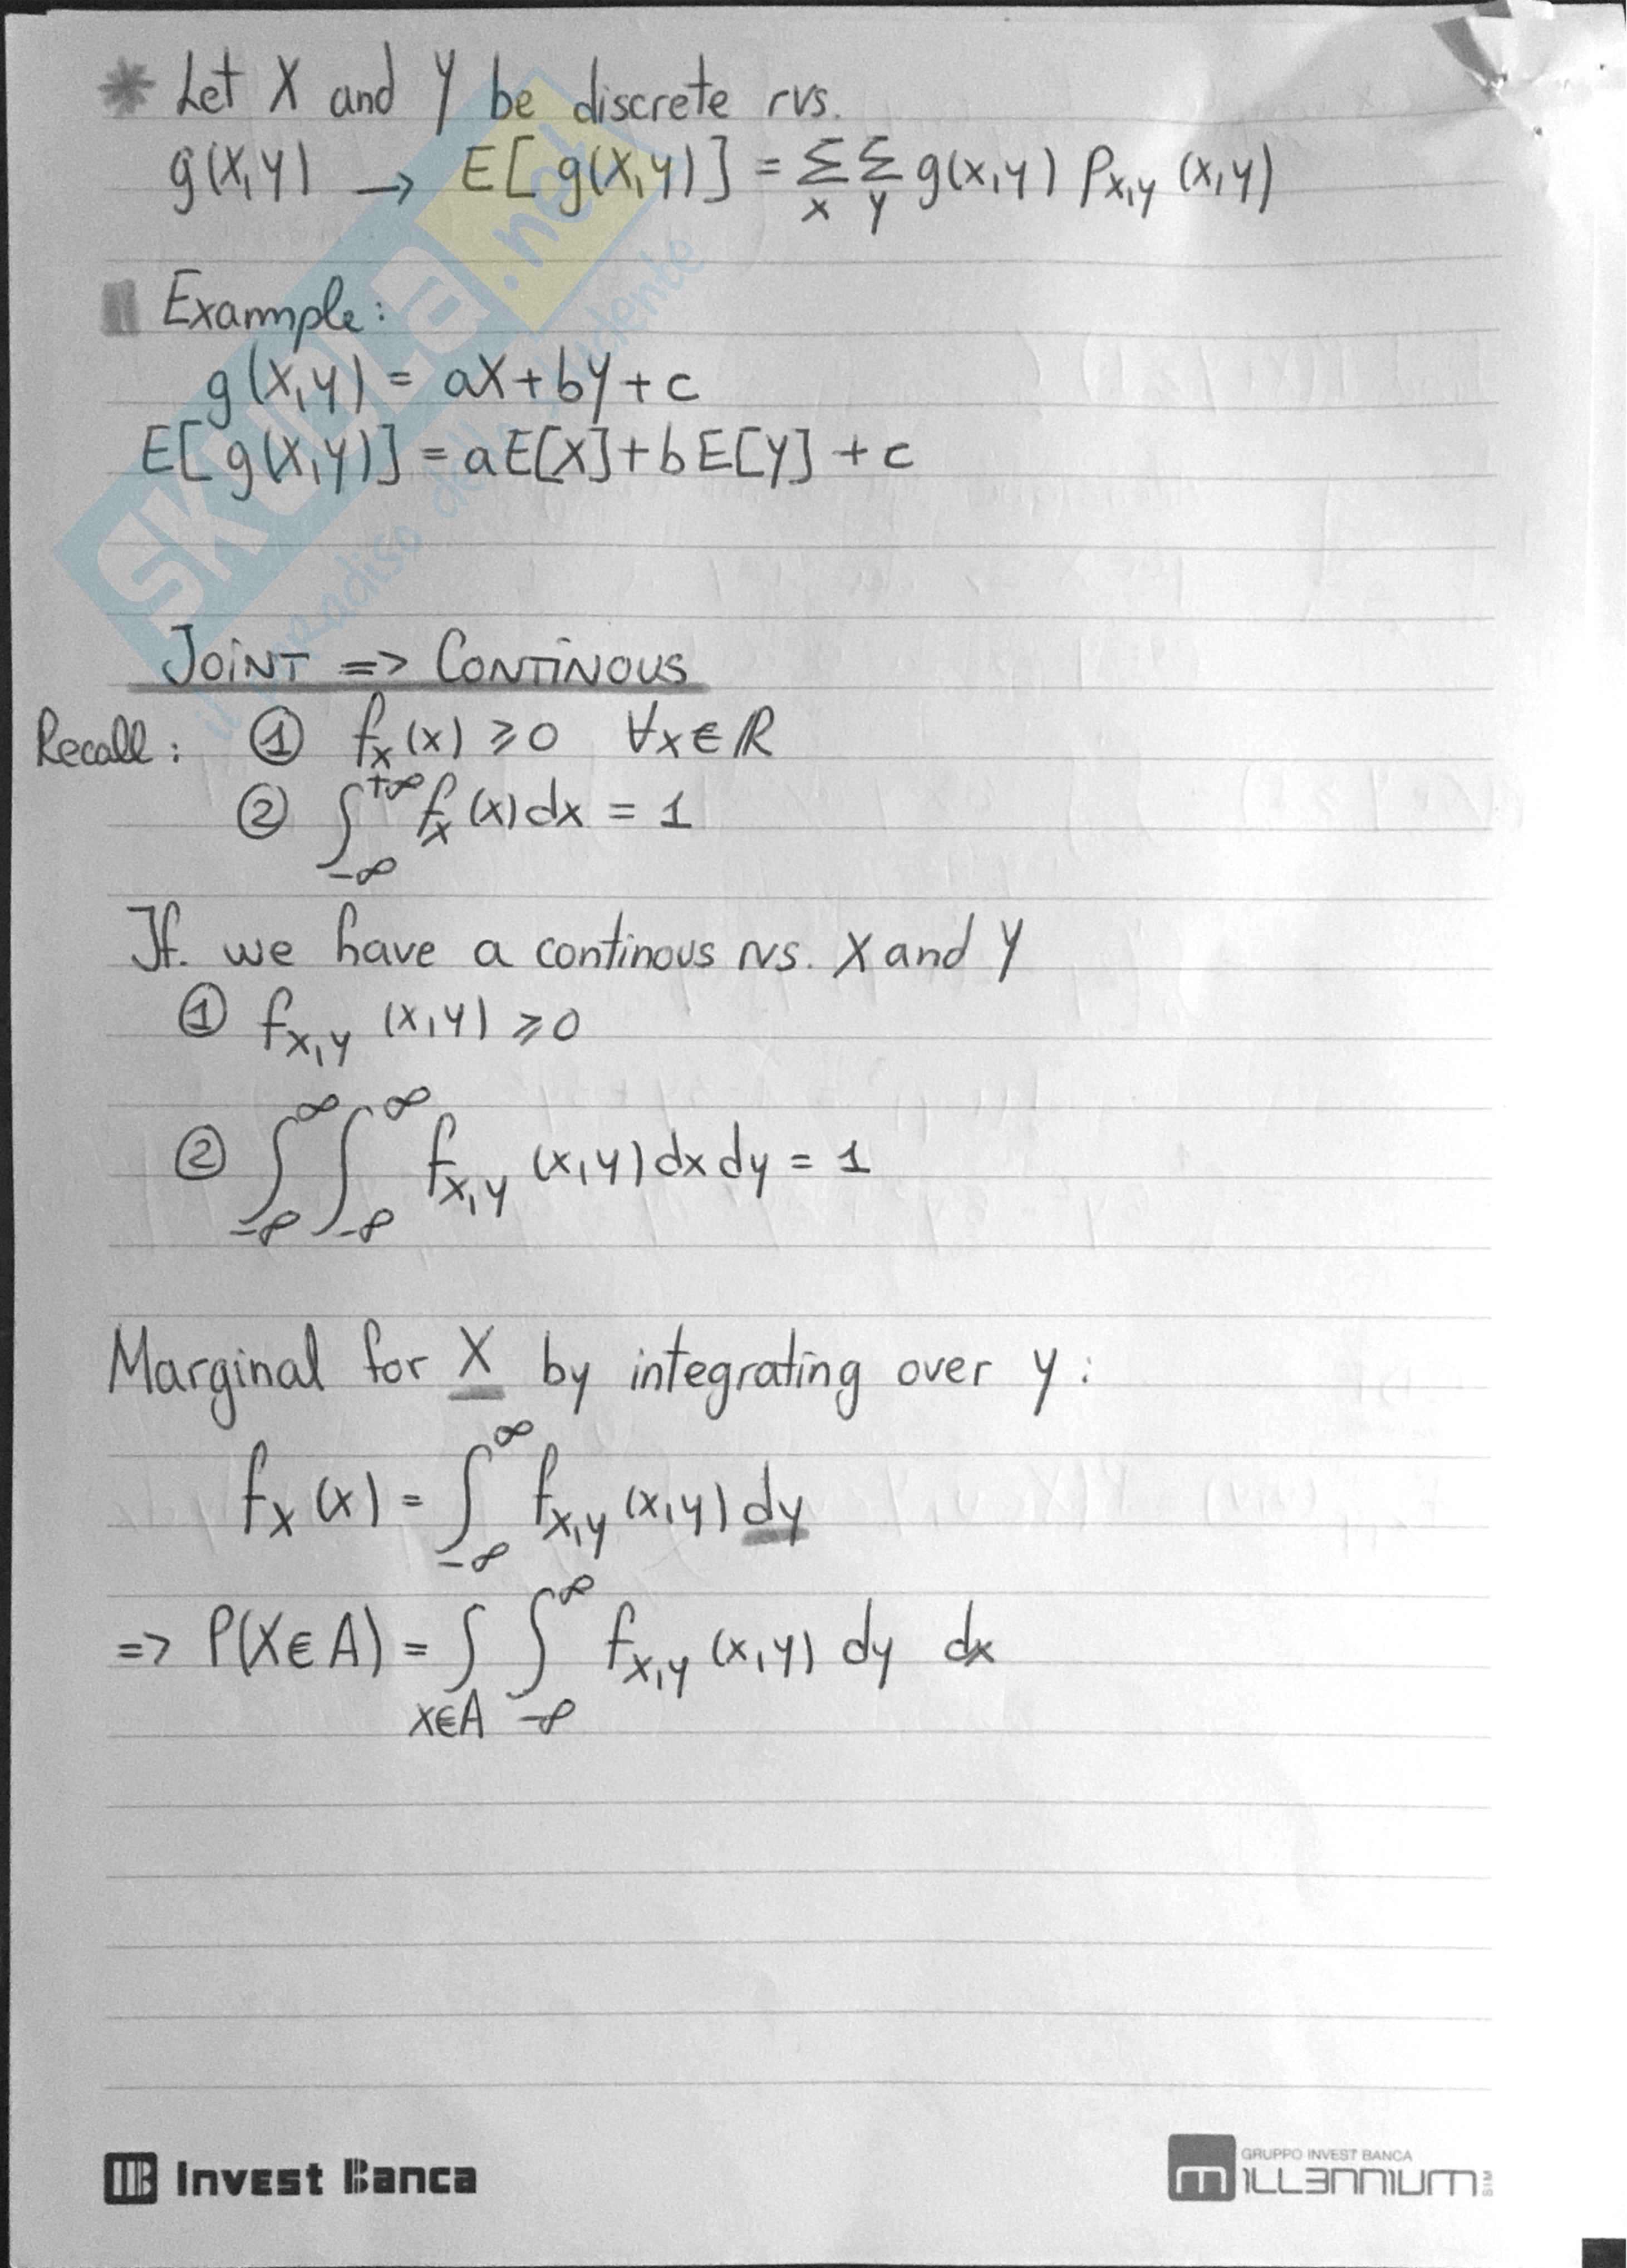 * Let X and Y be discrete rvs.
g(X,Y) → E[g(X,Y)] = Σ_x Σ_y g(x,y) p_{X,Y} (x,y)
Example:
g(X,Y) = aX+bY+c
E[g(X,Y)] = aE[X]+bE[Y]+c
JOINT => CONTINOUS
Recall: ① f_X(x) ⩾ 0 ∀x∈ℝ
② ∫_{-∞}^{+∞} f_X(x)dx = 1
If we have a continous rvs. X and Y
① f_{X,Y} (x,y) ⩾ 0
② ∫_{-∞}^{∞} ∫_{-∞}^{∞} f_{X,Y} (x,y) dx dy = 1
Marginal for X by integrating over y:
f_X(x) = ∫_{-∞}^{∞} f_{X,Y} (x,y) dy
=> P(X∈A) = ∫_{x∈A} ∫_{-∞}^{∞} f_{X,Y} (x,y) dy dx
SKUOLA.net
il paradiso dello studente
IB Invest Banca
GRUPPO INVEST BANCA
MILLENNIUM SIM